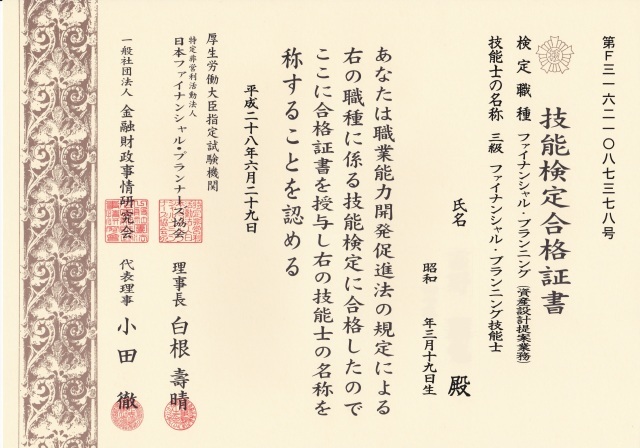 第F三一六二一〇八七三七八号
技能検定合格証書
検定職種 ファイナンシャル・プランニング(資産設計提案業務)
技能士の名称 三級 ファイナンシャル・プランニング技能士
氏名 殿
昭和 年三月十九日生
あなたは職業能力開発促進法の規定による
右の職種に係る技能検定に合格したので
ここに合格証書を授与し右の技能士の名称を
称することを認める
平成二十八年六月二十九日
厚生労働大臣指定試験機関
特定非営利活動法人
日本ファイナンシャル・プランナーズ協会 理事長 白根壽晴
一般社団法人 金融財政事情研究会 代表理事 小田徹